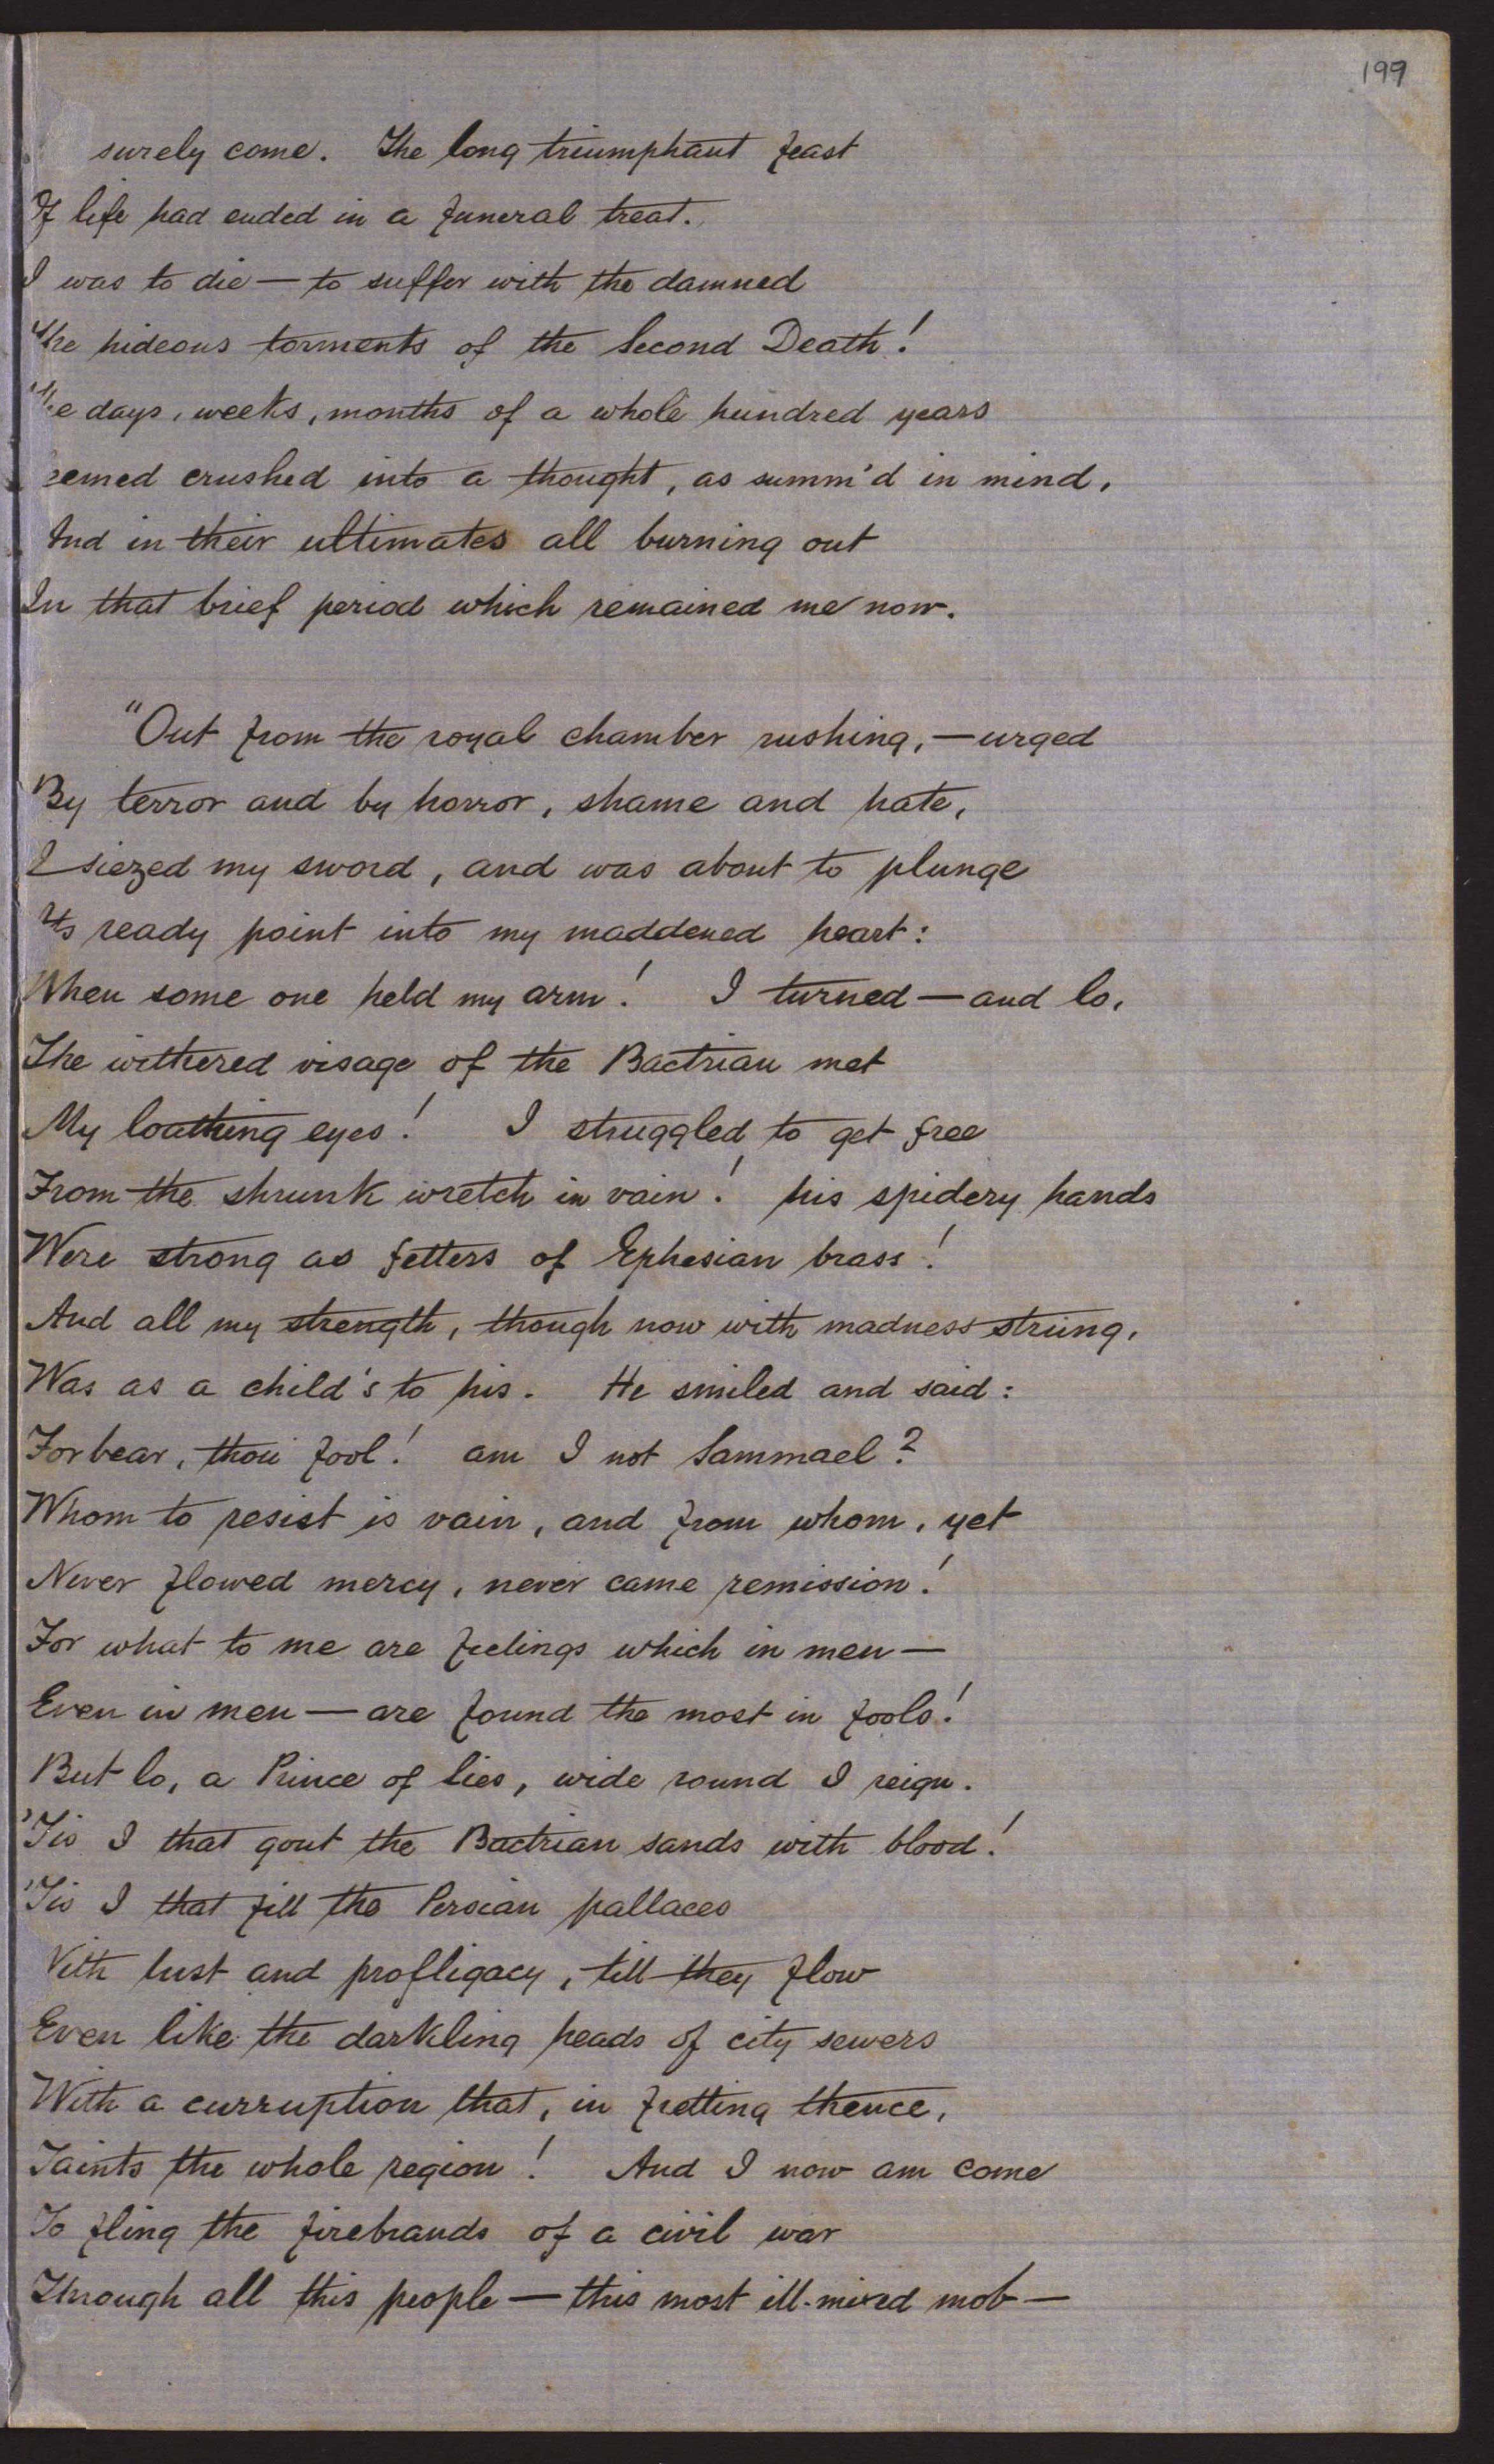 199
surely come. The long triumphant feast
Of life had ended in a funeral treat.
I was to die — to suffer with the damned
The hideous torments of the Second Death!
The days, weeks, months of a whole hundred years
eemed crushed into a thought, as summ'd in mind,
And in their ultimates all burning out
In that brief period which remained me now.
"Out from the royal chamber rushing, — urged
By terror and by horror, shame and hate,
I siezed my sword, and was about to plunge
Its ready point into my maddened heart:
When some one held my arm! I turned — and lo,
The withered visage of the Bactrian met
My loathing eyes! I struggled to get free
From the shrunk wretch in vain! his spidery hands
Were strong as fetters of Ephesian brass!
And all my strength, though now with madness strung,
Was as a child's to his. He smiled and said:
Forbear, thou fool! am I not Sammael?
Whom to resist is vain, and from whom, yet
Never flowed mercy, never came remission!
For what to me are feelings which in men —
Even in men — are found the most in fools!
But lo, a Prince of lies, wide round I reign.
'Tis I that gout the Bactrian sands with blood!
'Tis I that fill the Persian pallaces
With lust and profligacy, till they flow
Even like the darkling heads of city sewers
With a curruption that, in fretting thence,
Taints the whole region! And I now am come
To fling the firebrands of a civil war
Through all this people — this most ill-mixed mob —